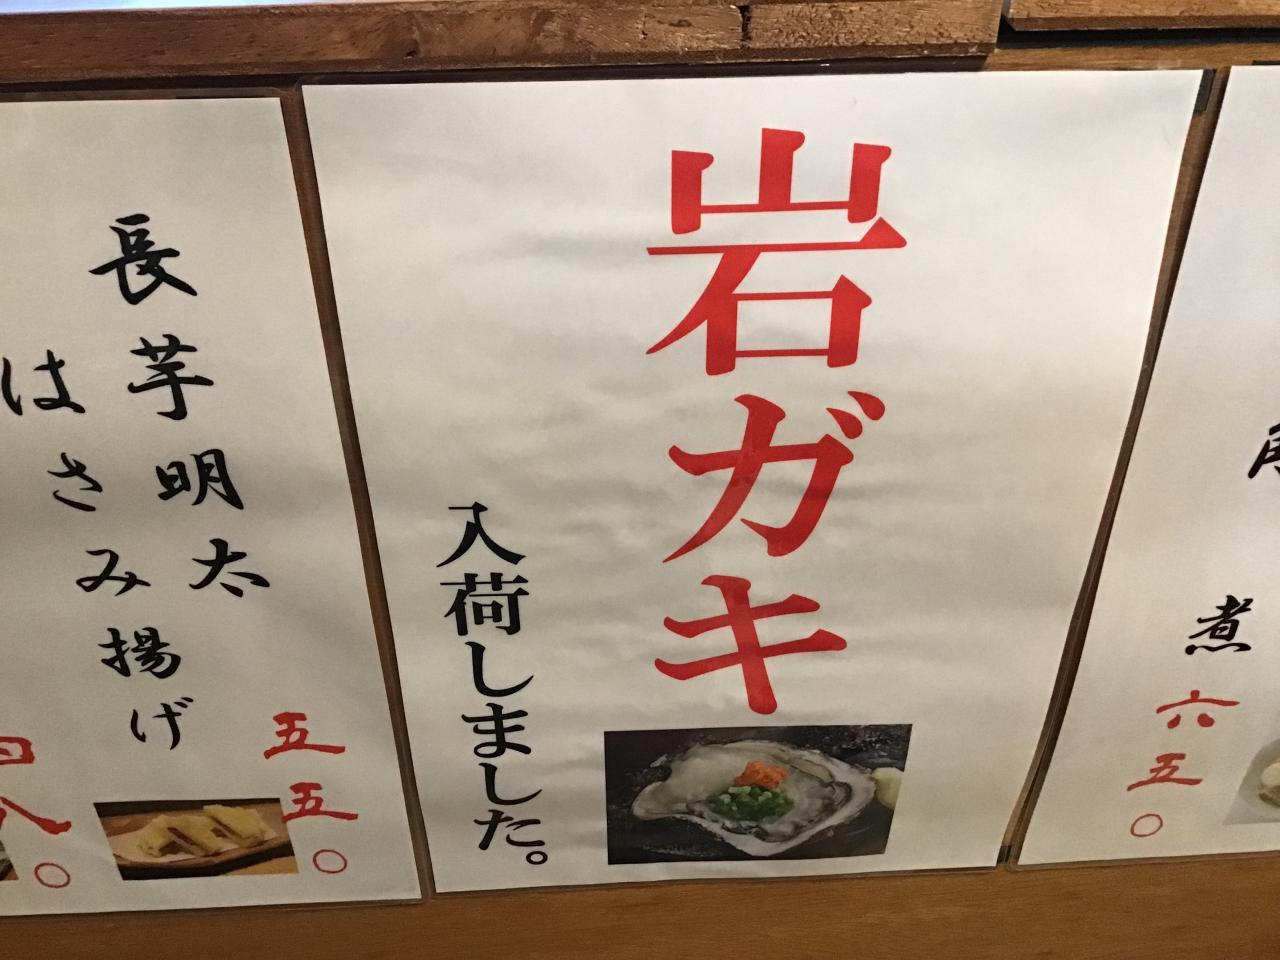 岩ガキ
入荷しました。
長芋明太
はさみ揚げ
五五〇
四八〇
煮
六五〇